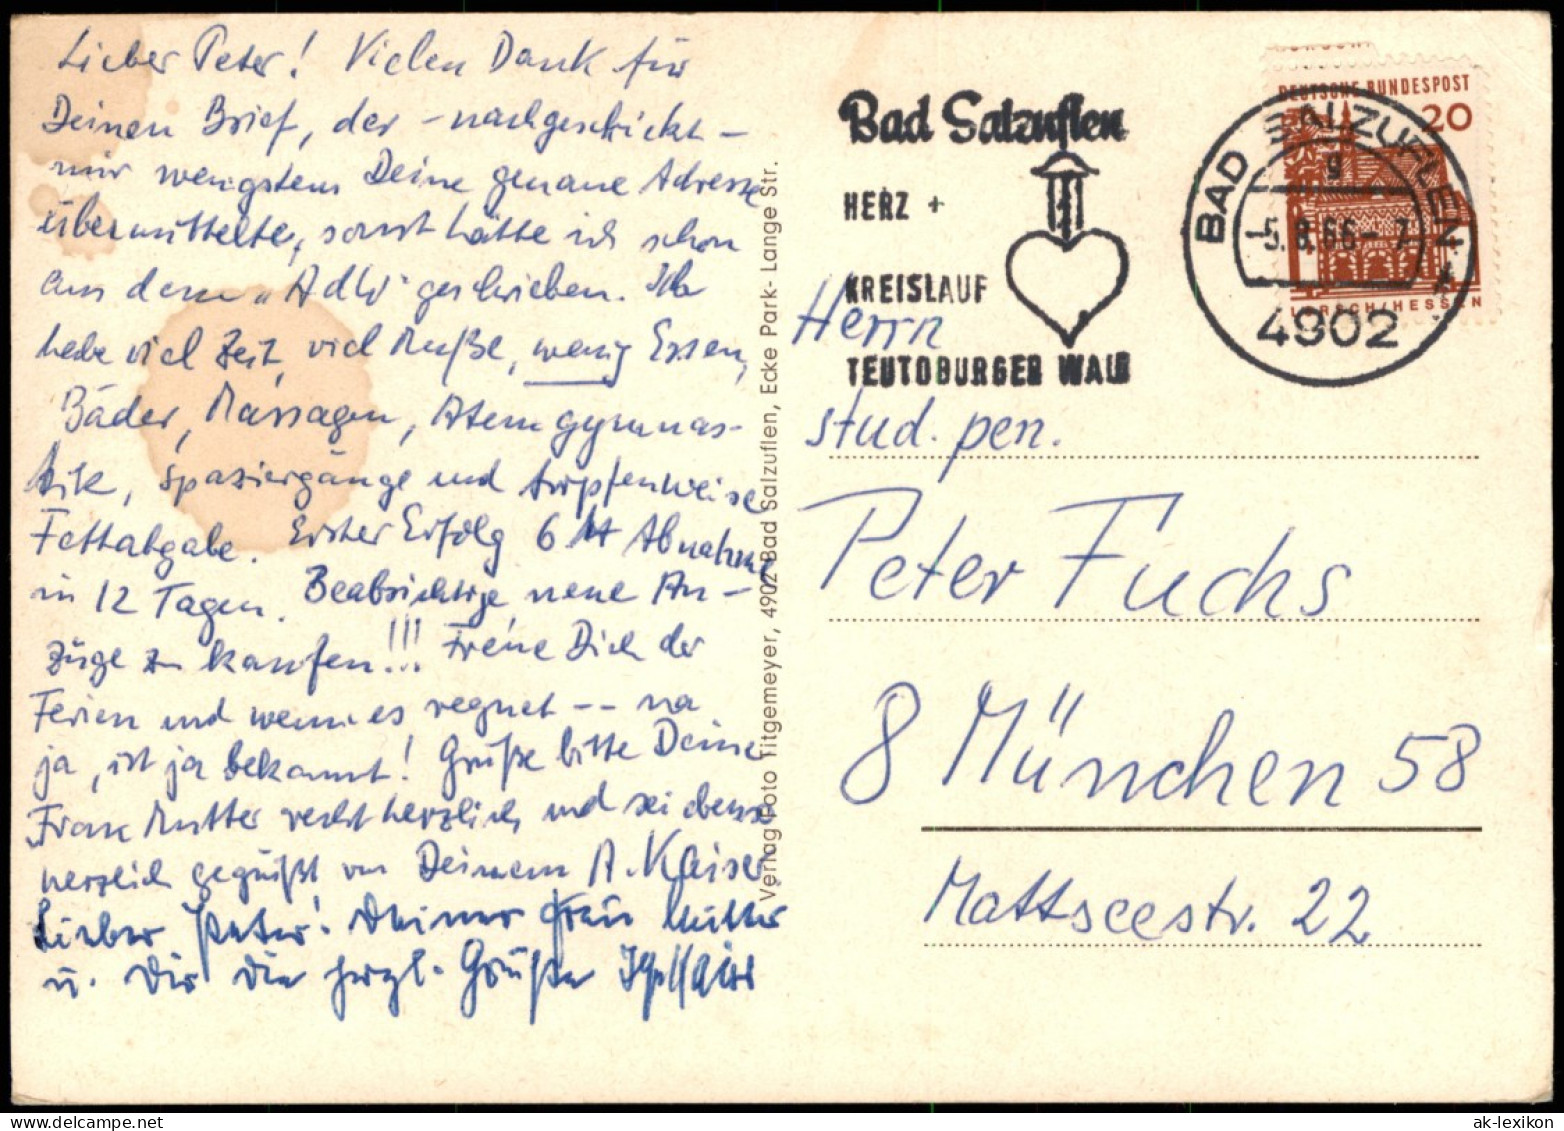 Lieber Peter! Vielen Dank für
Deinen Brief, der – nachgeschickt –
mir wenigstens Deine genaue Adresse
übermittelte, sonst hätte ich schon
aus dem „Adler" geschrieben. Ich
habe viel Zeit, viel Muße, wenig Essen,
Bäder, Massagen, Atemgymnas-
tik, Spaziergänge und tropfenweise
Fettabgabe. Erster Erfolg 6 Abnahme
in 12 Tagen. Beabsichtige neue An-
züge zu kaufen!!! Freue Dich der
Ferien und wenn es regnet -- na
ja, ist ja bekannt! Grüße bitte Deine
Frau Mutter recht herzlich und sei ebenso
herzlich gegrüßt von Deinem A. Kaiser
Lieber Peter! Deiner Frau Mutter
u. Dir die herzl. Grüße
Verlag Foto Titgemeyer, 4902 Bad Salzuflen, Ecke Park- Lange Str.
Bad Salzuflen
HERZ +
KREISLAUF
TEUTOBURGER WALD
BAD SALZUFLEN 1
g
-5.8.66-7
4902
DEUTSCHE BUNDESPOST
20
LORSCH/HESSEN
Herrn
stud. pen.
Peter Fuchs
8 München 58
Mattseestr. 22
ak-lexikon